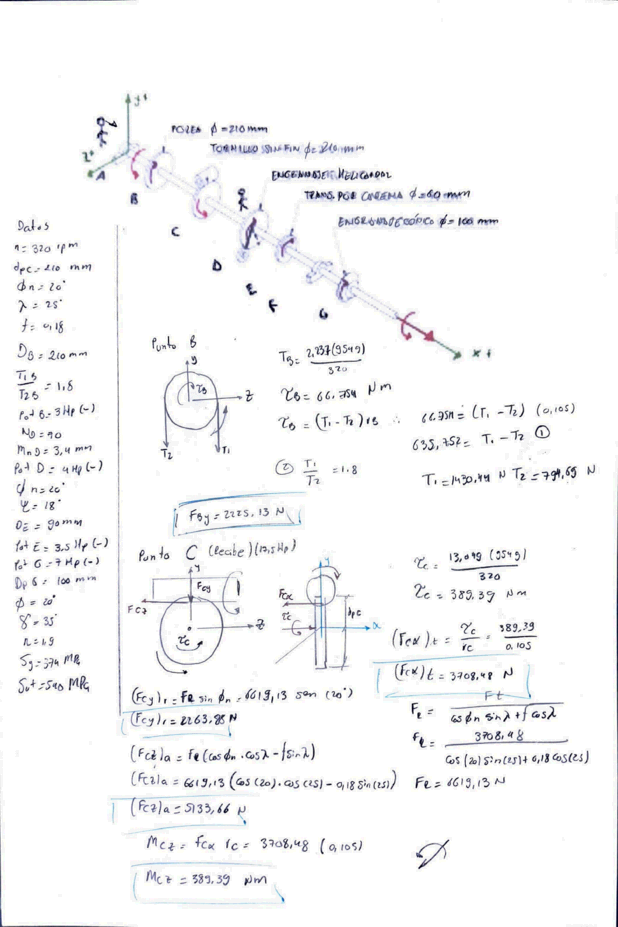 y+
z+
A
POLEA ϕ=210 mm
TORNILLO SIN FIN ϕ=210 mm
ENGRANAJE HELICOIDAL
TRANS. POR CADENA ϕ=90 mm
ENGRANAJE CÓNICO ϕ=100 mm
B
C
D
E
F
G
x+
Datos
n= 320 rpm
dpc= 210 mm
ϕn= 20°
λ= 25°
f= 0,18
DB= 210 mm
T1B/T2B = 1,8
Pot B= 3 Hp (-)
ND= 90
MnD= 3,4 mm
Pot D = 4 Hp (-)
ϕn= 20°
ψ= 18°
DE= 90 mm
Pot E= 3,5 Hp (-)
Pot G= 7 Hp (-)
Dp G= 100 mm
ϕ= 20°
γ= 35°
n= 1,9
Sy= 374 MPa
Sut= 540 MPa
Punto B
y
τB
z
T2
T1
TB= 2,237(9549)/320
τB= 66,754 Nm
τB= (T1-T2) rB ∴ 66,754= (T1-T2) (0,105)
635,752= T1-T2 ①
② T1/T2 = 1.8
T1=1430,44 N T2= 794,69 N
FBy= 2225,13 N
Punto C (recibe) (17,5 Hp)
y
Fcy
Fcz
z
τc
y
Fcx
τc
dpc
x
τc = 13,049 (9549)/320
τc = 389,39 Nm
(Fcx)t = τc/rc = 389,39/0,105
(Fcx)t= 3708,48 N
(Fcy)r= FR sin ϕn= 6619,13 sen (20°)
(Fcy)r= 2263,85 N
FR = Ft/(cos ϕn sin λ + f cos λ)
FR= 3708,48/(cos (20) sin(25)+ 0,18 cos(25))
FR= 6619,13 N
(Fcz)a = FR (cos ϕn · cos λ - f sin λ)
(Fcz)a= 6619,13 (cos (20) · cos (25) - 0,18 sin(25))
(Fcz)a = 5133,66 N
Mcz = Fcx rc = 3708,48 (0,105)
Mcz = 389,39 Nm